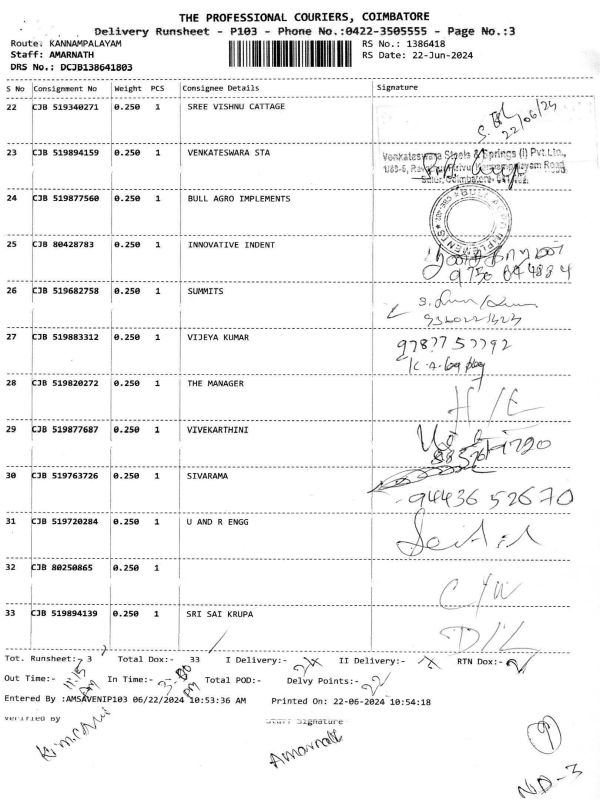 THE PROFESSIONAL COURIERS, COIMBATORE
Delivery Runsheet - P103 - Phone No.:0422-3505555 - Page No.:3
Route: KANNAMPALAYAM RS No.: 1386418
Staff: AMARNATH RS Date: 22-Jun-2024
DRS No.: DCJB138641803
S No Consignment No Weight PCS Consignee Details Signature
22 CJB 519340271 0.250 1 SREE VISHNU CATTAGE
22/06/24
23 CJB 519894159 0.250 1 VENKATESWARA STA Venkateswara Steels & Springs (I) Pvt.Ltd.,
24 CJB 519877560 0.250 1 BULL AGRO IMPLEMENTS
25 CJB 80428783 0.250 1 INNOVATIVE INDENT
26 CJB 519682758 0.250 1 SUMMITS
27 CJB 519883312 0.250 1 VIJEYA KUMAR
28 CJB 519820272 0.250 1 THE MANAGER H/E
29 CJB 519877687 0.250 1 VIVEKARTHINI
30 CJB 519763726 0.250 1 SIVARAMA
94436 52670
31 CJB 519720284 0.250 1 U AND R ENGG
32 CJB 80250865 0.250 1
33 CJB 519894139 0.250 1 SRI SAI KRUPA D/L
Tot. Runsheet:- 3 Total Dox:- 33 I Delivery:- II Delivery:- RTN Dox:-
Out Time:- 11:15 Am In Time:- Pm Total POD:- Delvy Points:- 22
Entered By :AMSAVENIP103 06/22/2024 10:53:36 AM Printed On: 22-06-2024 10:54:18
Verified By Staff Signature
Amarnath
9
N.D-3